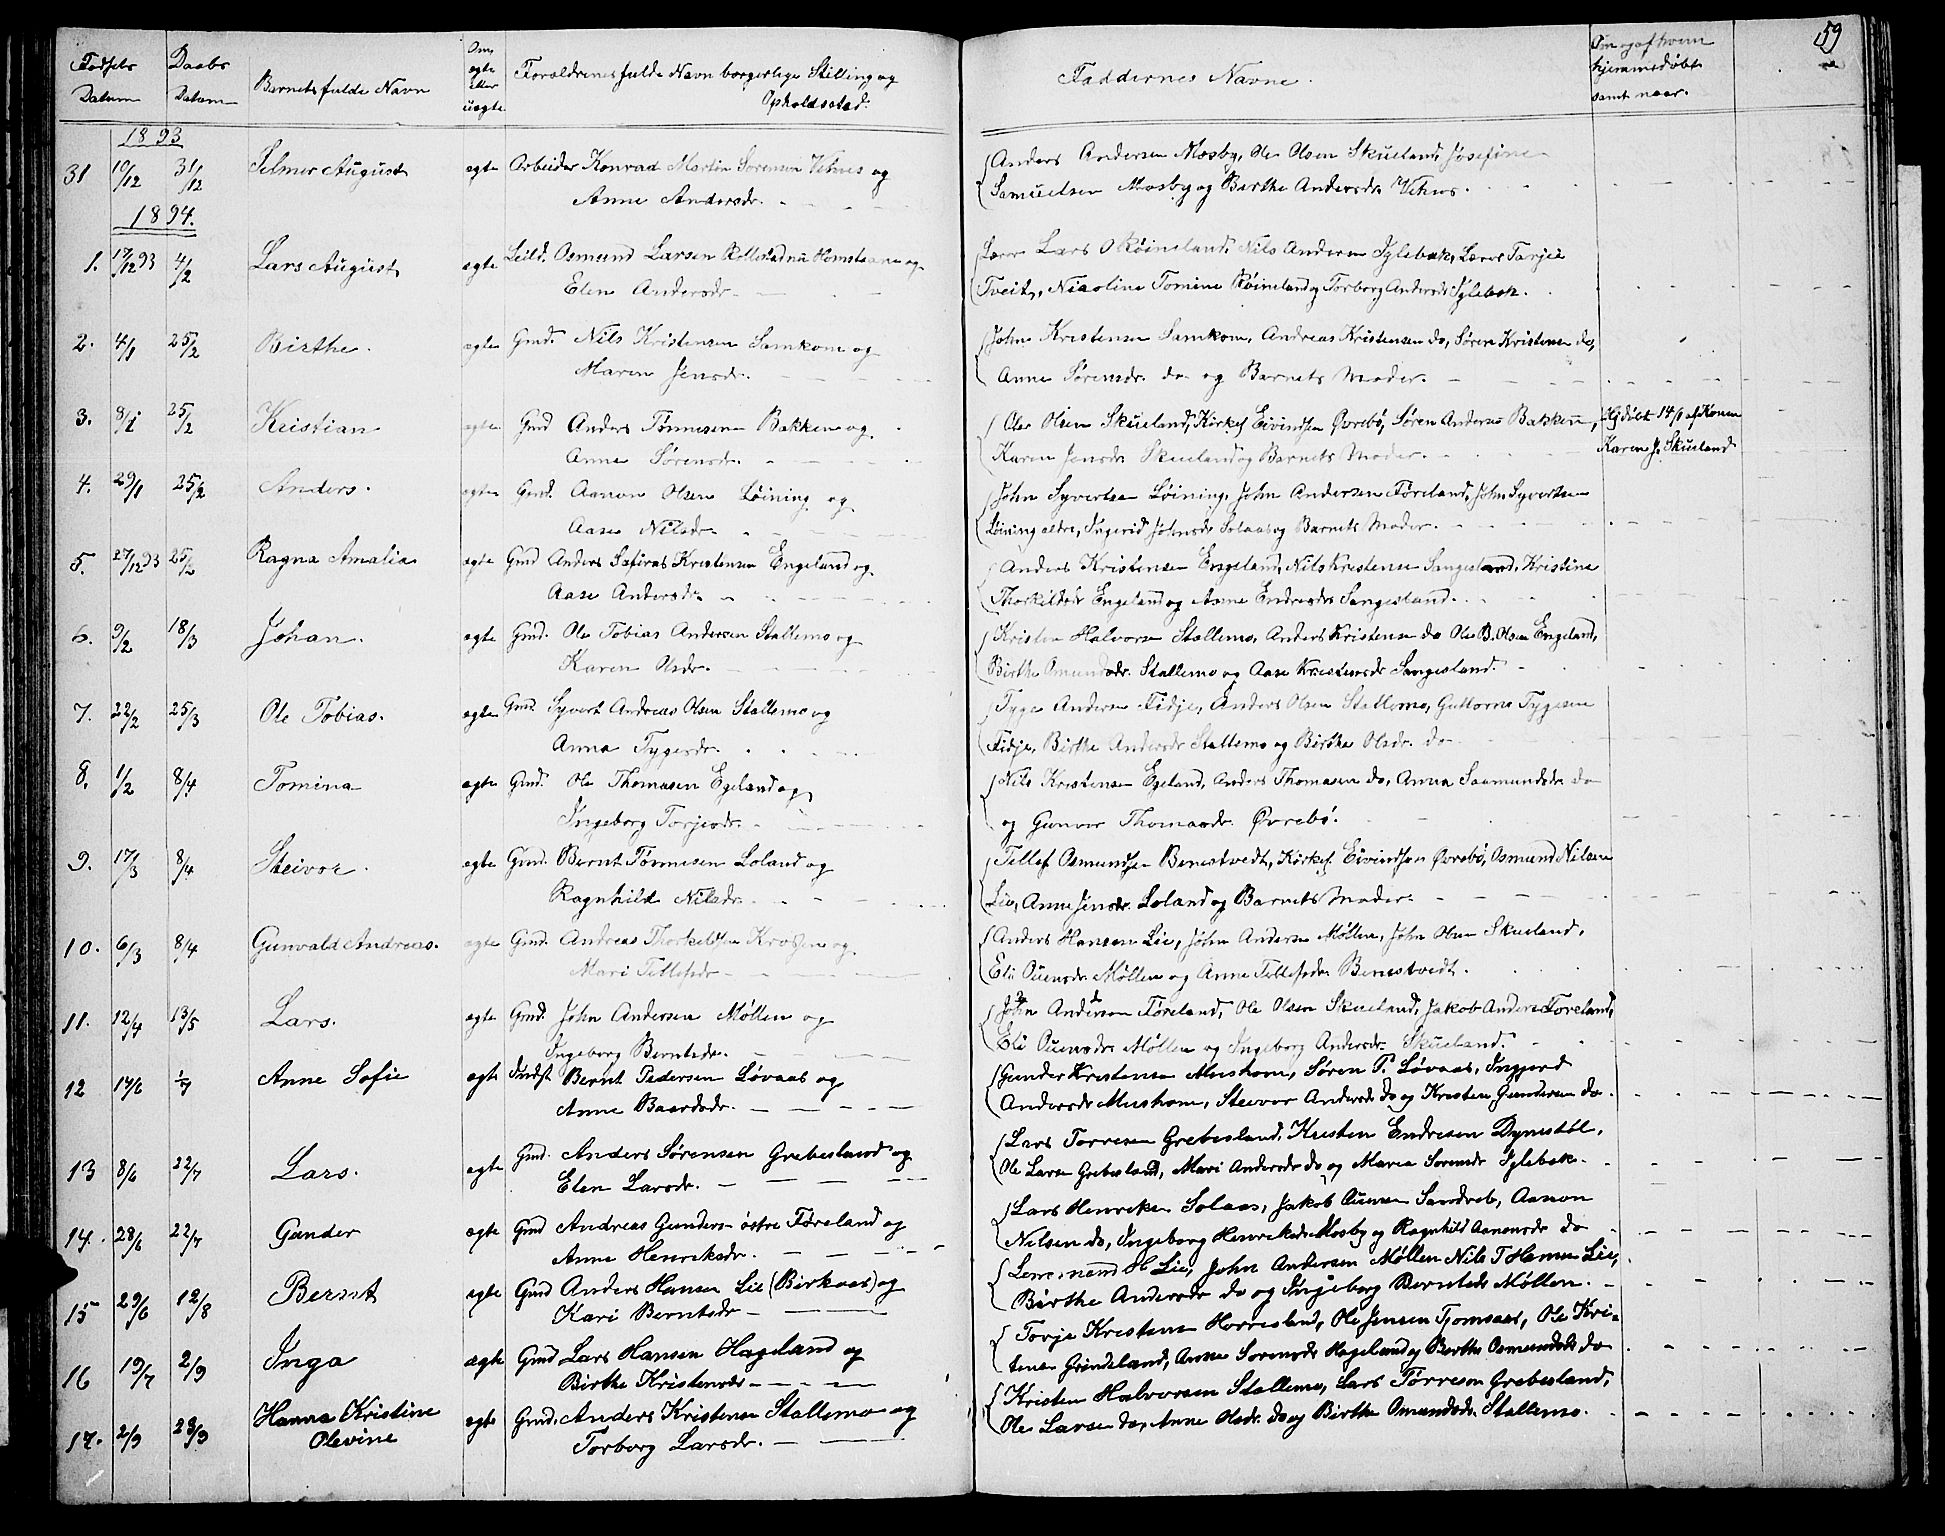 59
Fødsels Datum
Daabs Datum
Barnets fulde Navn
Om ægte eller uægte
Forældrenes fulde Navn borgerlige Stilling og Opholdssted:
Faddernes Navne.
Om og af hvem hjemmedøbt samt naar.
1893
31 10/12 31/12 Selmer August ægte Arbeider Konrad Martin Sørensen Vehus og
Anne Andersdr.
Anders Andersen Mosby, Ole Olsen Skueland, Josefine
Samuelsen Mosby og Berthe Andersdr Vehus.
1894.
1. 17/12 93 4/2 Lars August ægte Leild. Osmund Larsen Homstean og
Elen Andersdr.
Lærer Lars O Røineland, Nils Andersen Iglebæk, Lærer Tarjei
Tveit, Nicoline Tomine Røineland og Torborg Andersdr Iglebæk.
2. 4/1 25/2 Birthe. ægte Gmd. Nils Kristensen Samkom og
Maren Jensdr.
John Kristensen Samkom, Andreas Kristensen do, Søren Kristensen do,
Anne Sørensdr. do og Barnets Moder.
3. 8/1 25/2 Kristian ægte Gmd Anders Tønnesen Bakken og
Anne Sørensdr.
Ole Olsen Skueland, Kirkes. Eivindsen Øvrebø, Søren Andersen Bakken,
Karen Jensdr Skueland og Barnets Moder.
Hjdøbt 14/1 af Konen
Karen J. Skueland
4. 29/1 25/2 Anders. ægte Gmd. Aanon Olsen Løining og
Aase Nilsdr.
John Syvertsen Løining, John Andersen Føreland, John Syvertsen
Løining ældre, Ingerid Johnsdr Solaas og Barnets Moder.
5. 27/12 93 25/2 Ragna Amalia ægte Gmd Anders Sefiras Kristensen Engeland og
Aase Andersdr.
Anders Kristensen Engeland, Nils Kristensen Sangesland, Kristine
Thorkildsdr Engeland og Anne Endresdr Sangesland.
6. 9/2 18/3 Johan. ægte Gmd. Ole Tobias Andersen Stallemo og
Karen Olsdr.
Kristen Halvorsen Stallemo, Anders Kristensen do Ole B. Olsen Engeland,
Birthe Omundsdr. Stallemo og Aase Kristensdr Sangesland.
7. 22/2 25/3 Ole Tobias. ægte Gmd. Syvert Andreas Olsen Stallemo og
Anna Tygesdr.
Tyge Andersen Fidje, Anders Olsen Stallemo, Guttorm Tygesen
Fidje, Birthe Andersdr Stallemo og Birthe Olsdr. do
8. 1/2 8/4 Tomina ægte Gmd. Ole Thomasen Egeland og
Ingeborg Torjesdr.
Nils Kristensen Egeland, Anders Thomasen do, Anna Saamundsdr do
og Gunvor Thomasdr. Øvrebø.
9. 17/3 8/4 Steivor. ægte Gmd. Bernt Tønnesen Loland og
Ragnhild Nilsdr.
Tellef Osmundsen Benestvedt, Kirkes. Eivindsen Øvrebø, Osmund Nilsen
Lie, Anne Jensdr. Loland og Barnets Moder.
10. 6/3 8/4 Gunvald Andreas. ægte Gmd. Andreas Thorkildsen Krossen og
Mari Tellefsdr
Anders Hansen Lie, John Andersen Møllen, John Olsen Skueland,
Eli Ouensdr. Møllen og Anne Tellefsdr. Benestvedt.
11. 12/4 13/5 Lars. ægte Gmd. John Andersen Møllen og
Ingeborg Berntsdr.
John Andersen Føreland, Ole Olsen Skueland, Jakob Andersen Føreland,
Eli Ouensdr Møllen og Ingeborg Andersdr Skueland.
12 14/6 1/7 Anne Sofie ægte Indst Bernt Pedersen Løvaas og
Anne Baardsdr.
Gunder Kristensen Mushom, Søren P. Løvaas, Ingjerd
Andersdr Mushom, Steivor Andersdr do og Kristen Gundersen do.
13 8/6 22/7 Lars. ægte Gmd. Anders Sørensen Grebesland og
Elen Larsdr.
Lars Torresen Grebesland, Kristen Endresen Dynestøl,
Ole Larsen Grebesland, Mari Andersdr do og Maren Sørensdr Iglebæk.
14. 28/6 22/7 Gunder ægte Gmd Andreas Gunders østre Føreland og
Anne Henriksdr.
Lars Henriksen Solaas, Jakob Ouensen Sandreb, Aanon
Nilsen do, Ingeborg Henriksdr Mosby og Ragnhild Aanonsdr do
15 29/6 12/8 Bernt ægte Gmd Anders Hansen Lie (Birkaas) og
Kari Berntsdr
Lensmand H Lie, John Andersen Møllen Nils T Lie,
Birthe Andersdr do og Ingeborg Berntsdr Møllen.
16 19/7 2/9 Inga ægte Gmd Lars Hansen Hageland og
Birthe Kristensdr
Torje Kristensen Horrisland, Ole Jensen Tjomsaas, Ole Kri-
tensen Grindsland, Anne Sørensdr Hageland og Berthe Osmundsdr do
17. 2/9 23/9 Hanna Kristine Olevine ægte Gmd. Anders Kristensen Stallemo og
Torborg Larsdr.
Kristen Halvorsen Stallemo, Lars Tørresen Grebesland,
Ole Larsen do, Anne Olsdr. do og Birthe Omundsdr. Stallemo.